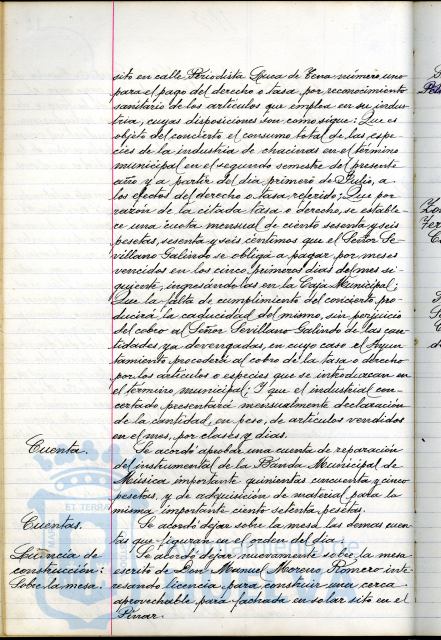 sito en calle Periodista Luca de Tena número uno
para el pago del derecho o tasa, por reconocimiento
sanitario de los artículos que emplea en su indus-
tria, cuyas disposiciones son como sigue: Que es
objeto del concierto el consumo total de las espe-
cies de la industria de chacinas en el término
municipal en el segundo semestre del presente
año y a partir del día primero de Julio, a
los efectos del derecho o tasa referido; Que por
razón de la citada tasa o derecho, se estable-
ce una cuota mensual de ciento sesenta y seis
pesetas, sesenta y seis céntimos que el Señor Se-
villano Galindo se obliga a pagar por meses
vencidos en los cinco primeros días del mes si-
guiente, ingresándolas en la Caja Municipal;
Que la falta de cumplimiento del concierto, pro-
ducirá la caducidad del mismo, sin perjuicio
del cobro al Señor Sevillano Galindo de las can-
tidades, ya devengadas, en cuyo caso el Ayun-
tamiento procederá al cobro de la tasa o derecho
por los artículos o especies que se introduzcan en
el término municipal; Y que el industrial con-
certado, presentará mensualmente declaración
de la cantidad, en peso, de artículos vendidos
en el mes, por clases y días.
Cuenta. Se acordó aprobar una cuenta de reparación
del instrumental de la Banda Municipal de
Música importante quinientas cincuenta y cinco
pesetas, y de adquisición de material para la
misma importante ciento setenta pesetas.
Cuentas. Se acordó dejar sobre la mesa las demás cuen-
tas que figuran en el orden del día.
Licencia de Se acordó dejar nuevamente sobre la mesa
construcción: escrito de Don Manuel Moreno Romero inte-
Sobre la mesa. resando licencia para construir una cerca
aprovechable para fachada en solar sito en el
Pinar.
ET TERRA